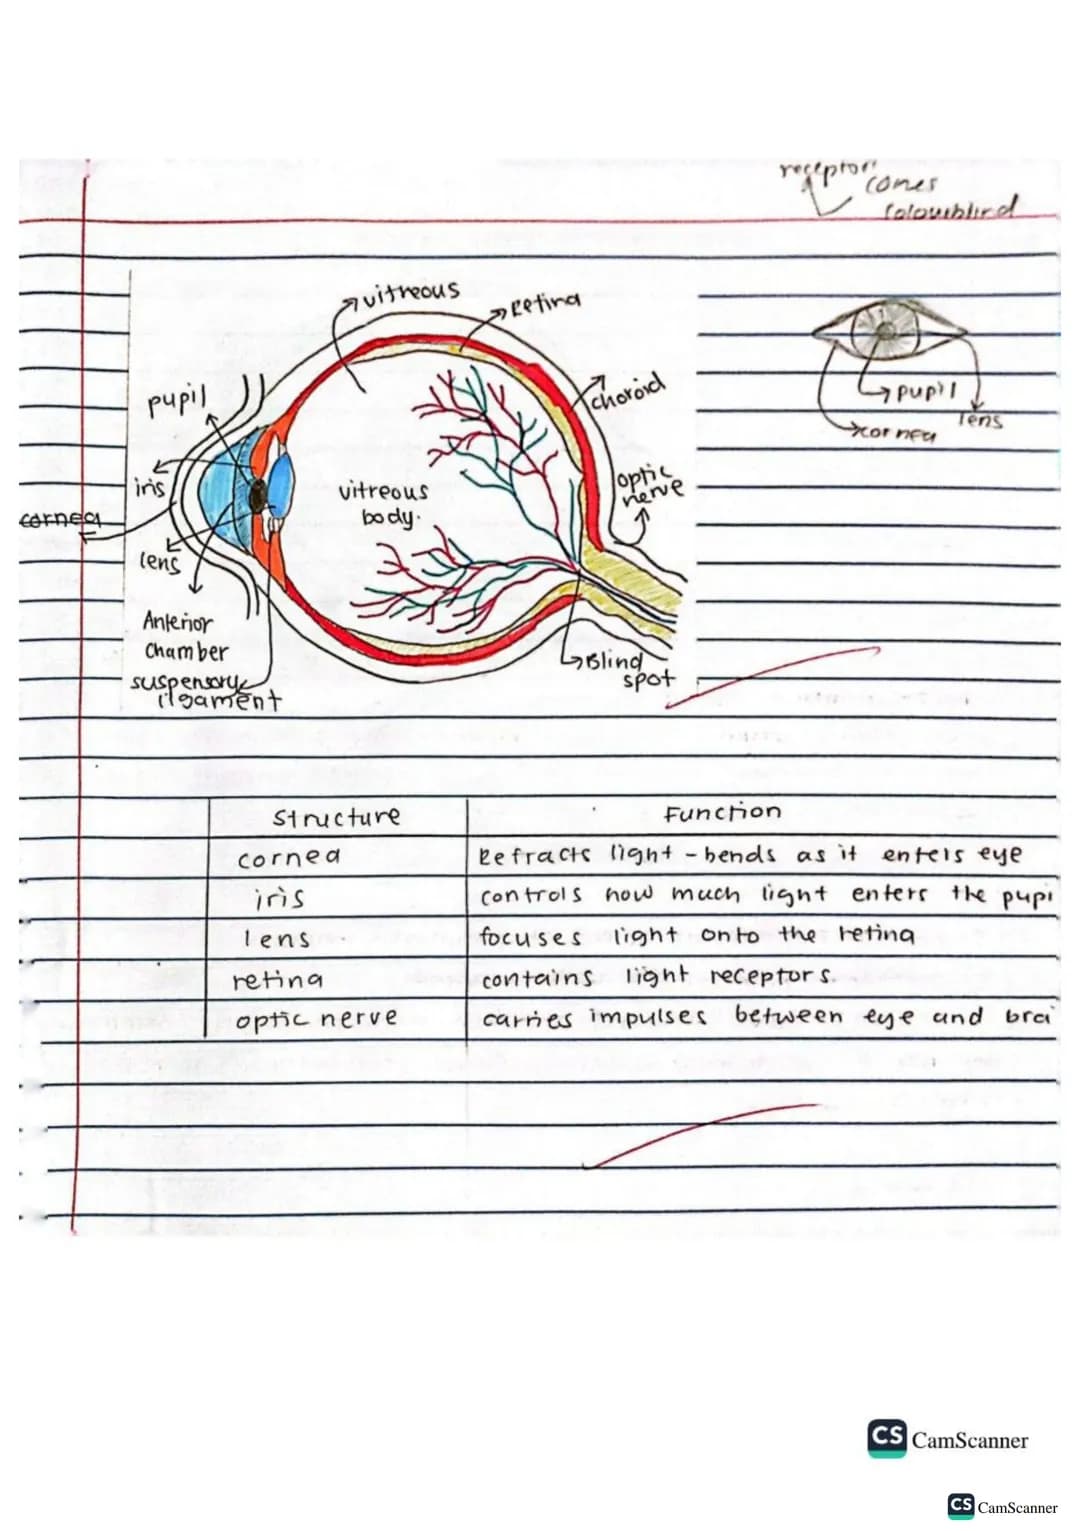 receptor
cones
colourblind
vitreous
Retina
pupil
choroid
iris
optic
nerve
cornea
vitreous
body.
lens
Anterior
chamber
suspensory
ligament
Blind
spot
pupil
lens
cornea
Structure Function
cornea Refracts light - bends as it enters eye
iris controls how much light enters the pupi
lens focuses light onto the retina
retina contains light receptors.
optic nerve carries impulses between eye and brai
CS CamScanner
CS CamScanner